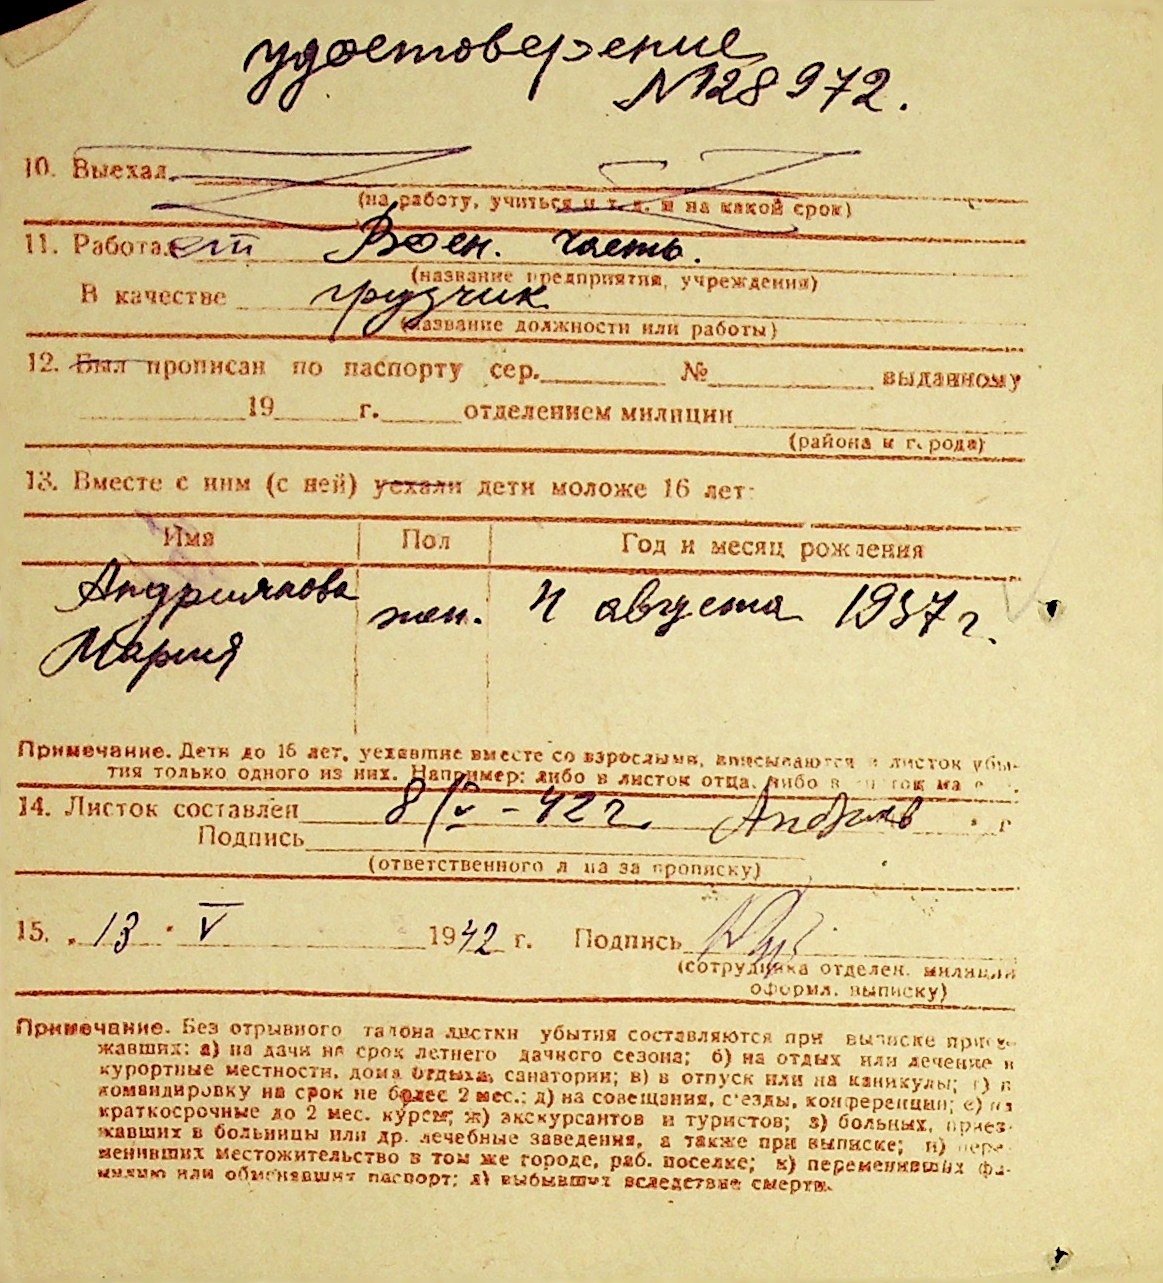 удостоверение
№128972.
10. Выехал
(на работу, учиться и т. д. и на какой срок)
11. Работает Воен. часть.
(название предприятия, учреждения)
В качестве грузчик
(название должности или работы)
12. Был прописан по паспорту сер. № выданному
19 г. отделением милиции
(района и города)
13. Вместе с ним (с ней) уехали дети моложе 16 лет:
Имя Пол Год и месяц рождения
Андриякова жен. 4 августа 1937 г.
Мария
Примечание. Дети до 16 лет, уехавшие вместе со взрослыми, вписываются в листок убы-
тия только одного из них. Например: либо в листок отца, либо в листок ма
14. Листок составлен 8/V-42 г. г
Подпись
(ответственного лица за прописку)
15. 13 V 1942 г. Подпись
(сотрудника отделен. милиции
оформл. выписку)
Примечание. Без отрывного талона листки убытия составляются при выписке приез-
жавших: а) на дачи на срок летнего дачного сезона; б) на отдых или лечение в
курортные местности, дома отдыха, санатории; в) в отпуск или на каникулы; г) в
командировку на срок не более 2 мес.; д) на совещания, с'езды, конференции; е) на
краткосрочные до 2 мес. курсы; ж) экскурсантов и туристов; з) больных, приез-
жавших в больницы или др. лечебные заведения, а также при выписке; и) пере-
менивших местожительство в том же городе, раб. поселке; к) переменивших фа-
милию или обменявших паспорт; л) выбывших вследствие смерти.